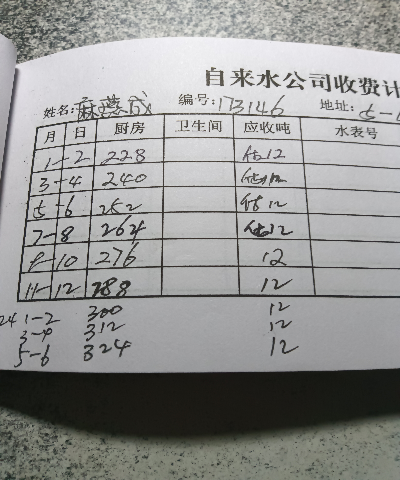 自来水公司收费计
姓名: 麻 成 编号: 173146 地址: 5-
月 日 厨房 卫生间 应收吨 水表号
1-2 228 估12
3-4 240 估12
5-6 252 估12
7-8 264 估12
9-10 276 12
11-12 288 12
24 1-2 300 12
3-4 312 12
5-6 324 12